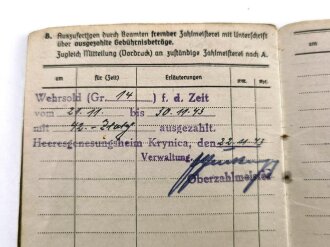 B. Auszufertigen durch Beamten fremder Zahlmeisterei mit Unterschrift
über ausgezahlte Gebührnisbeträge.
Zugleich Mitteilung (Vordruck) an zuständige Zahlmeisterei nach A.
am für (Zeit) Erläuterungen RM. Rpf.
Wehrsold (Gr. 14) f. d. Zeit
vom 21.11. bis 30.11.43
mit 42.- Zloty ausgezahlt.
Heeresgenesungsheim Krynica, den 22.11.43
Verwaltung.
Oberzahlmeister
am